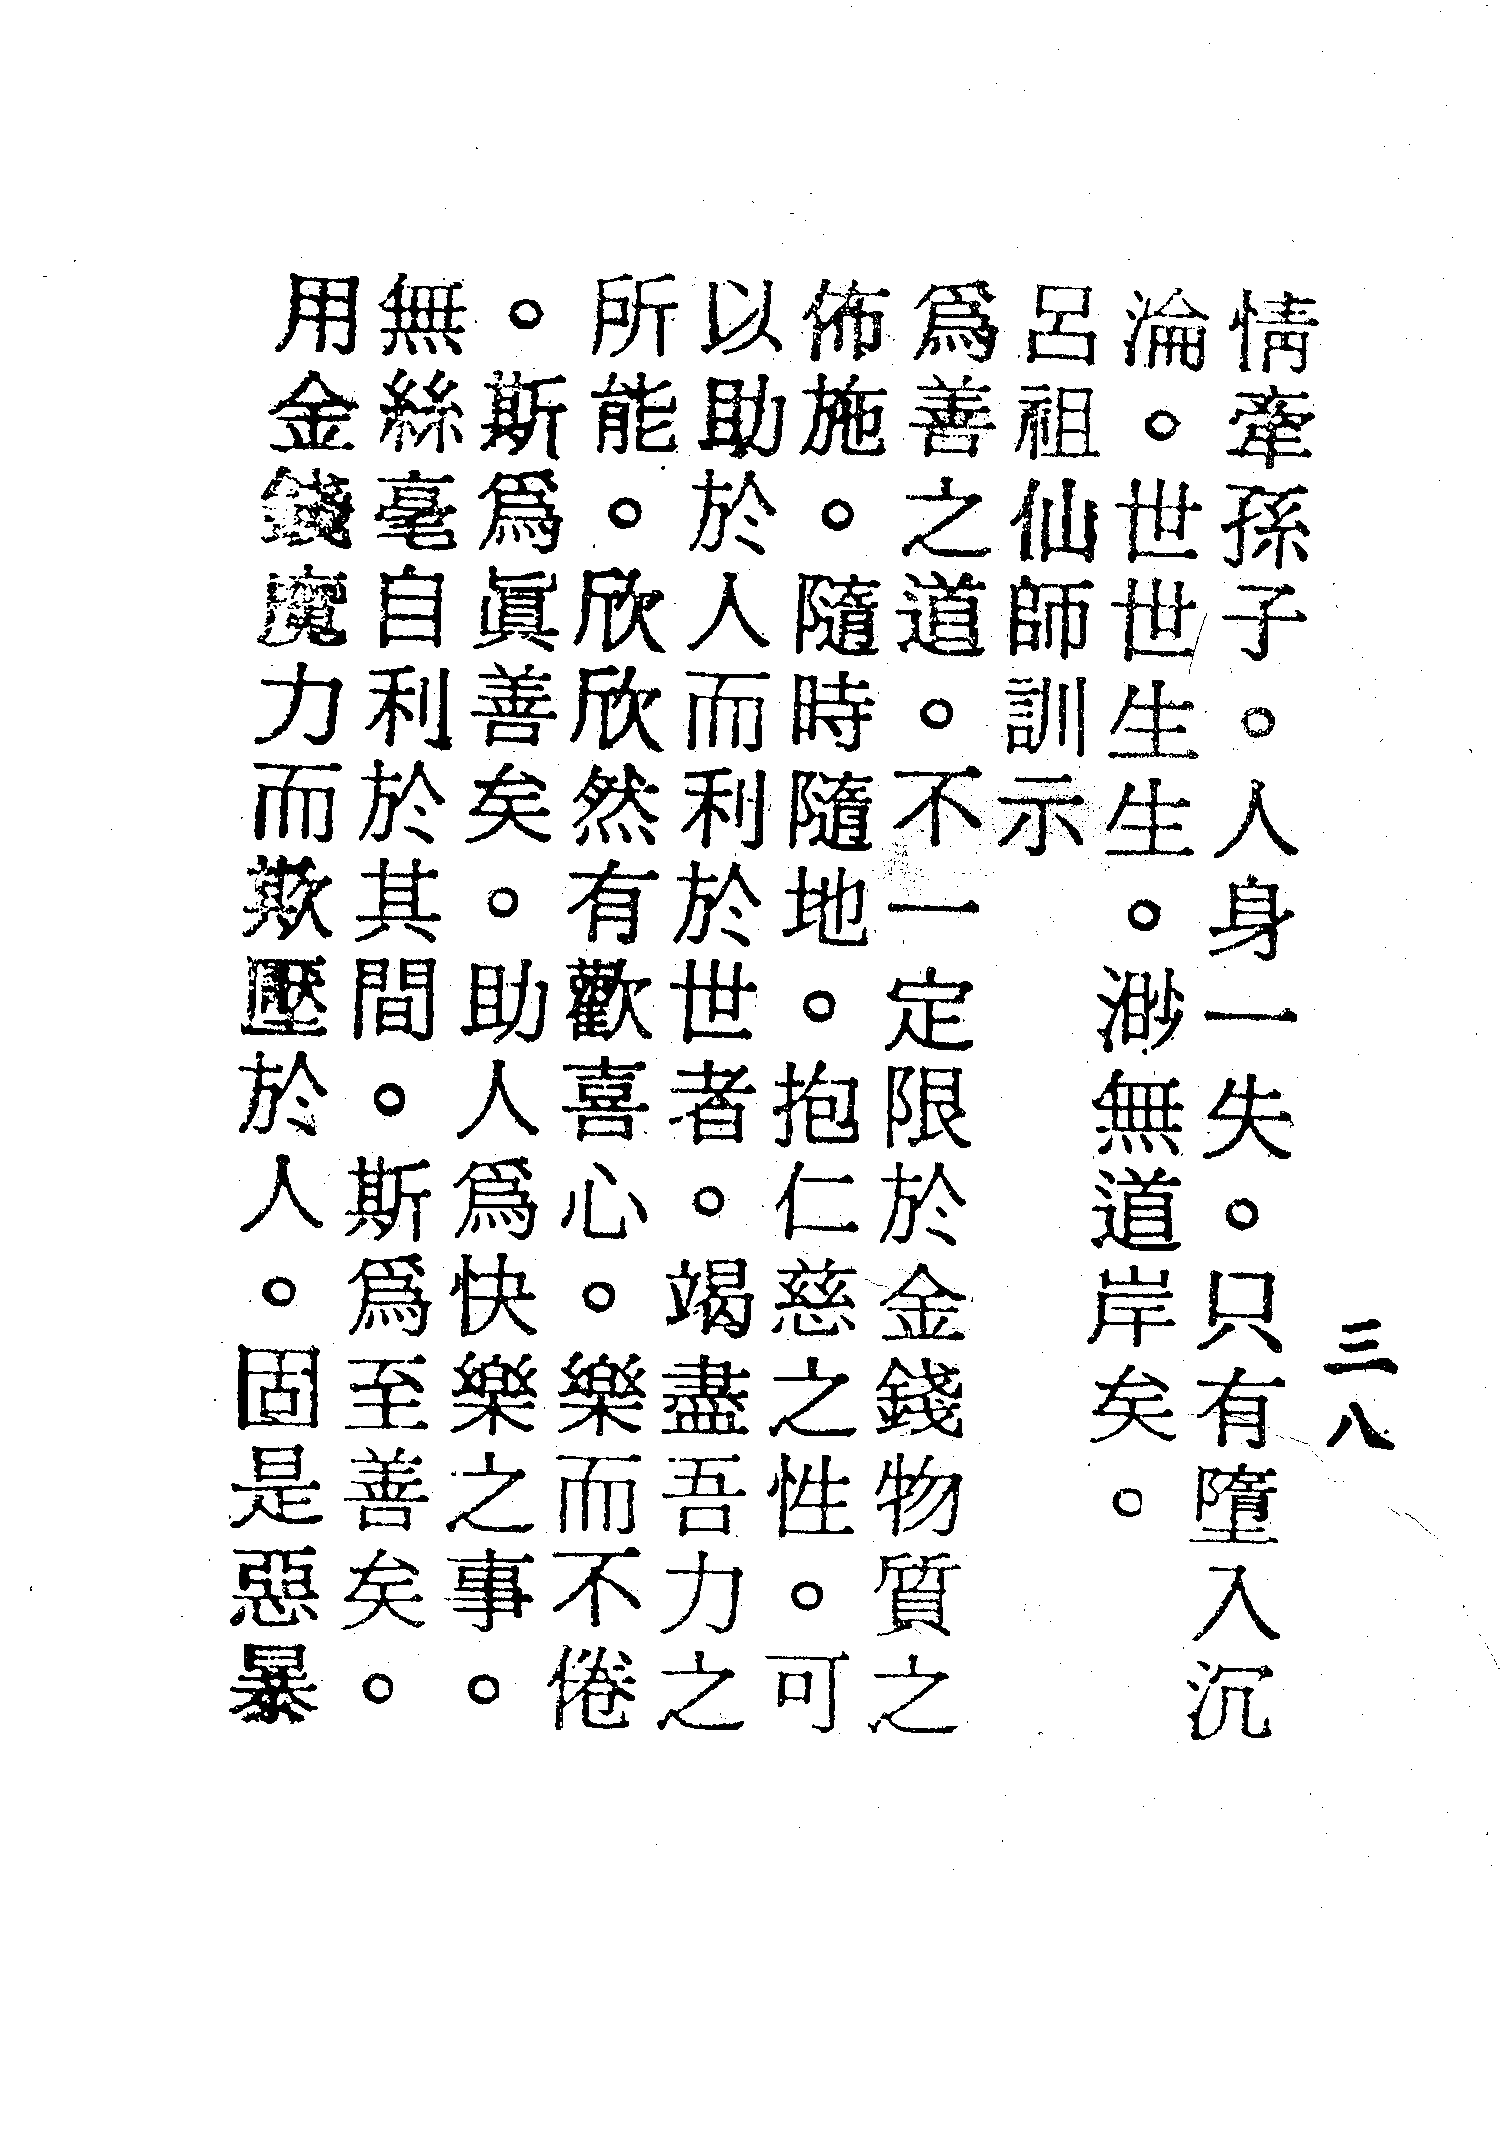 三八
情牽孫子。人身一失。只有墮入沉
淪。世世生生。渺無道岸矣。
呂祖仙師訓示
爲善之道。不一定限於金錢物質之
佈施。隨時隨地。抱仁慈之性。可
以助於人而利於世者。竭盡吾力之
所能。欣欣然有歡喜心。樂而不倦
。斯爲眞善矣。助人爲快樂之事。
無絲毫自利於其間。斯爲至善矣。
用金錢魔力而欺壓於人。固是惡暴